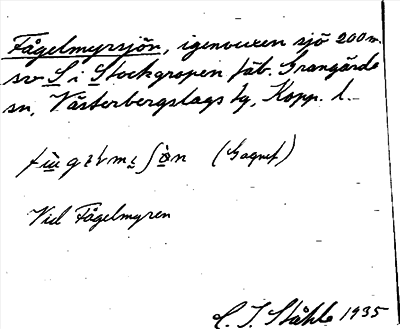 Fågelmyrsjön, igenvuxen sjö 200 m.
sv S i Stockgropen fäb. Grangärde
sn, Västerbergslags tg, Kopp. l.
(Gagnef)
Vid Fågelmyren
C. I. Ståhle 1935